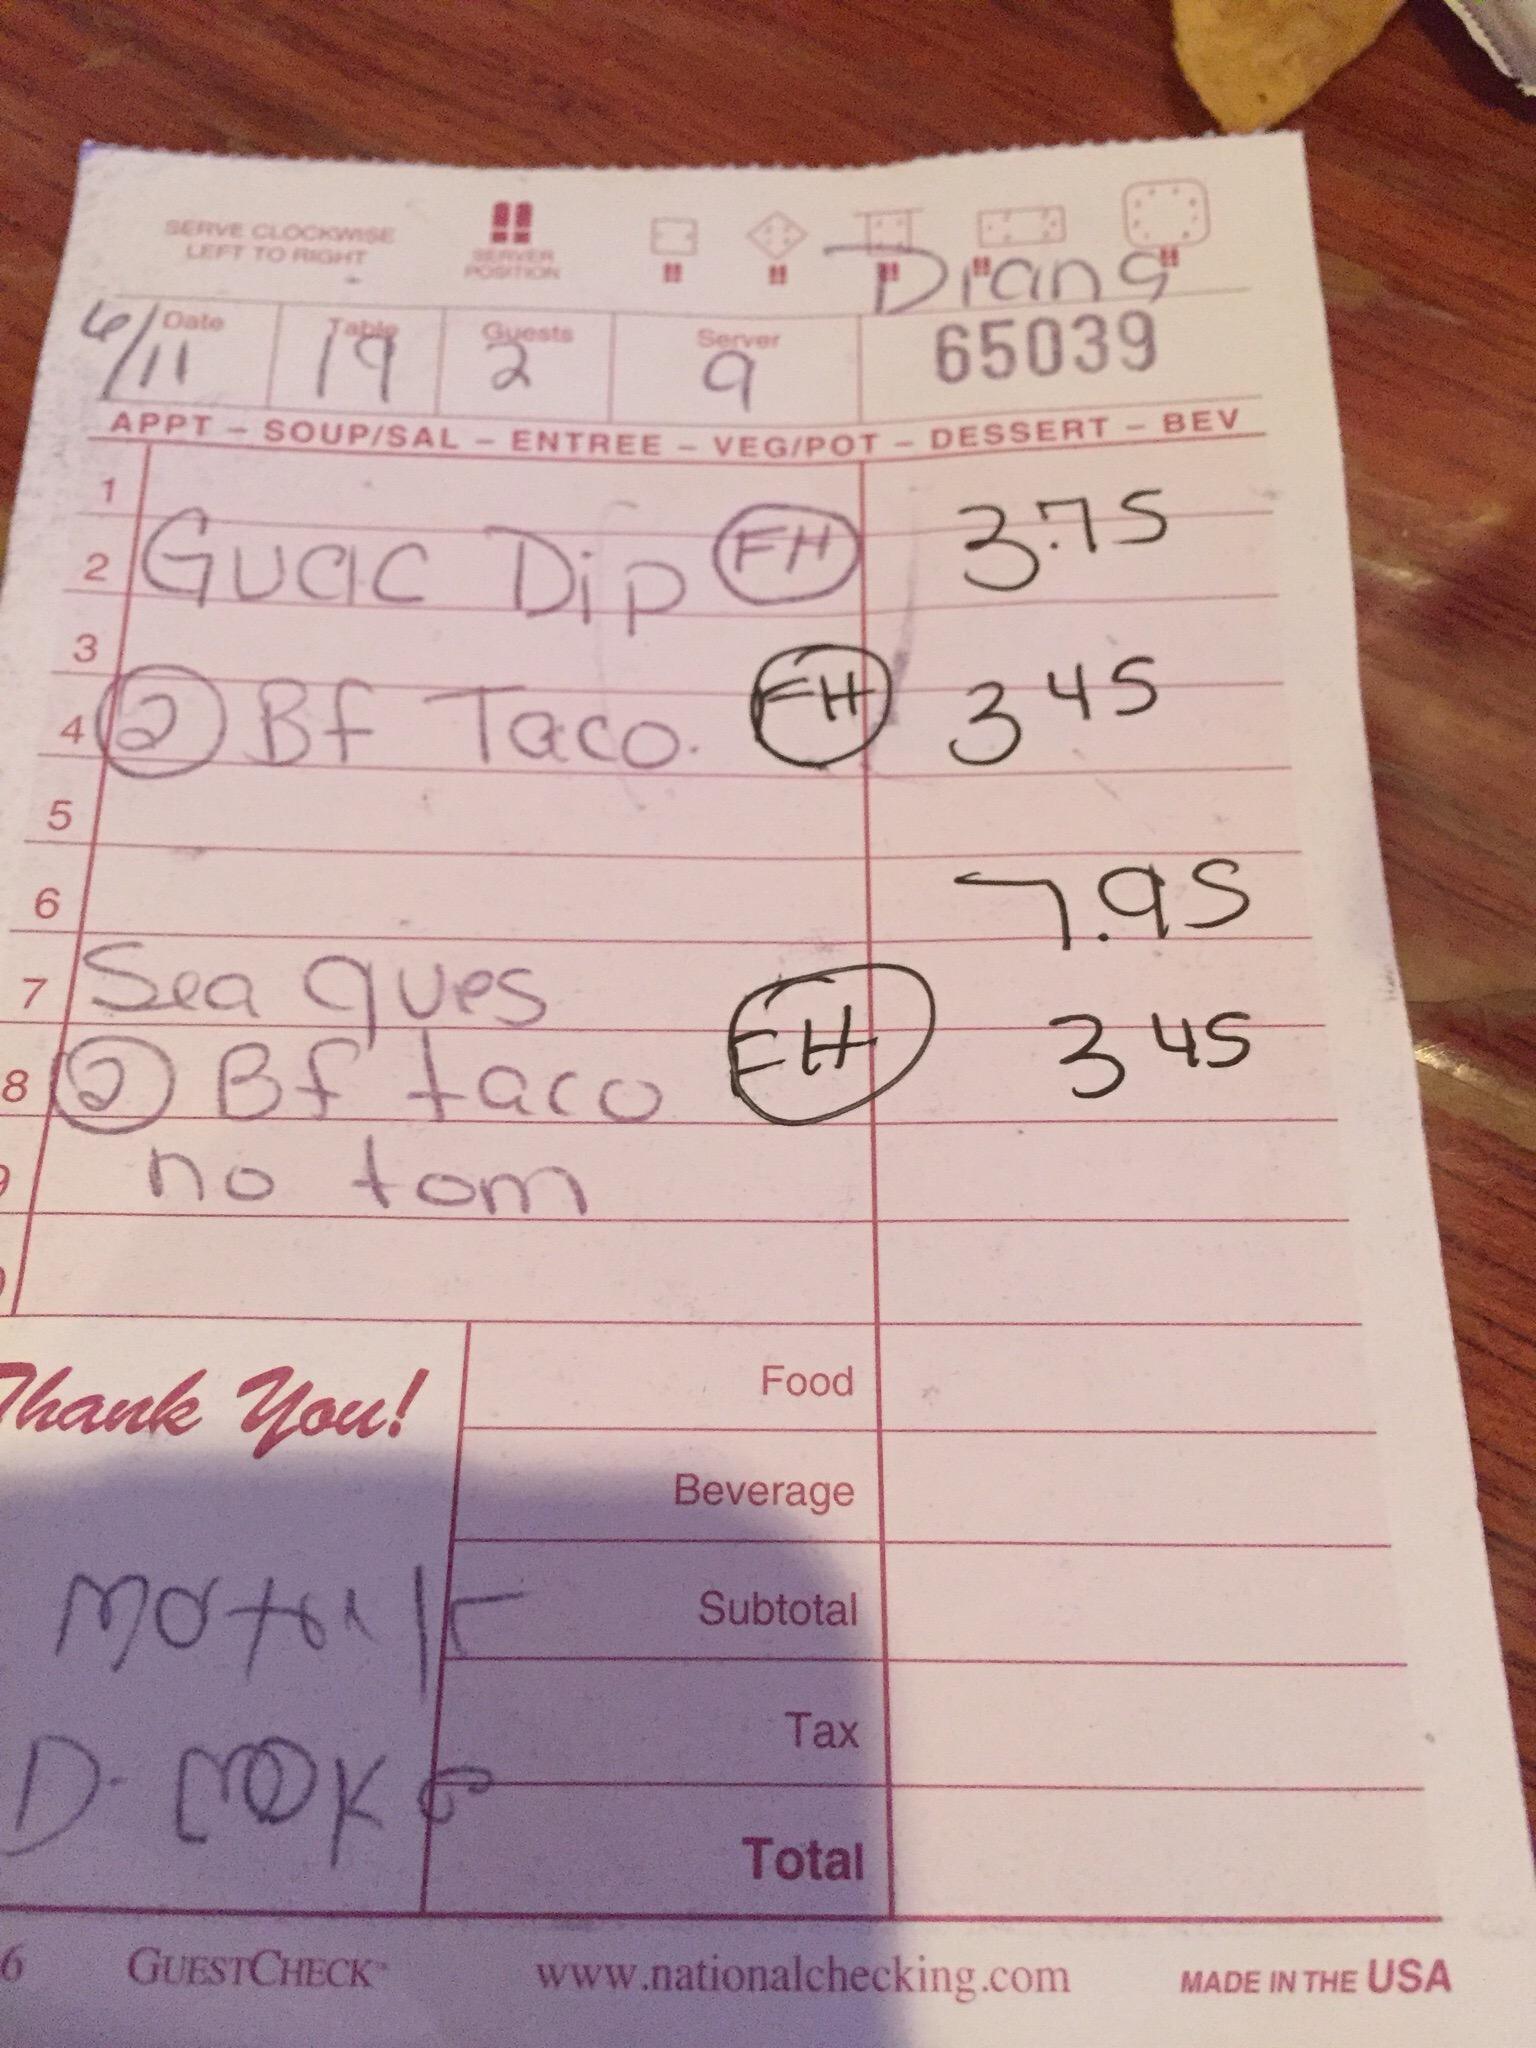 SERVE CLOCKWISE
LEFT TO RIGHT
SERVER
POSITION
Diana
Date 6/11 Table 19 Guests 2 Server 9 65039
APPT – SOUP/SAL – ENTREE – VEG/POT – DESSERT – BEV
1
2 Guac Dip FH 3.75
3
4 2 Bf Taco. FH 3 45
5
6 7.95
7 Sea ques
8 2 Bf taco FH 3 45
9 no tom
Thank You!
Food
Beverage
Subtotal
Tax
Total
D.
6 GUESTCHECK™ www.nationalchecking.com MADE IN THE USA